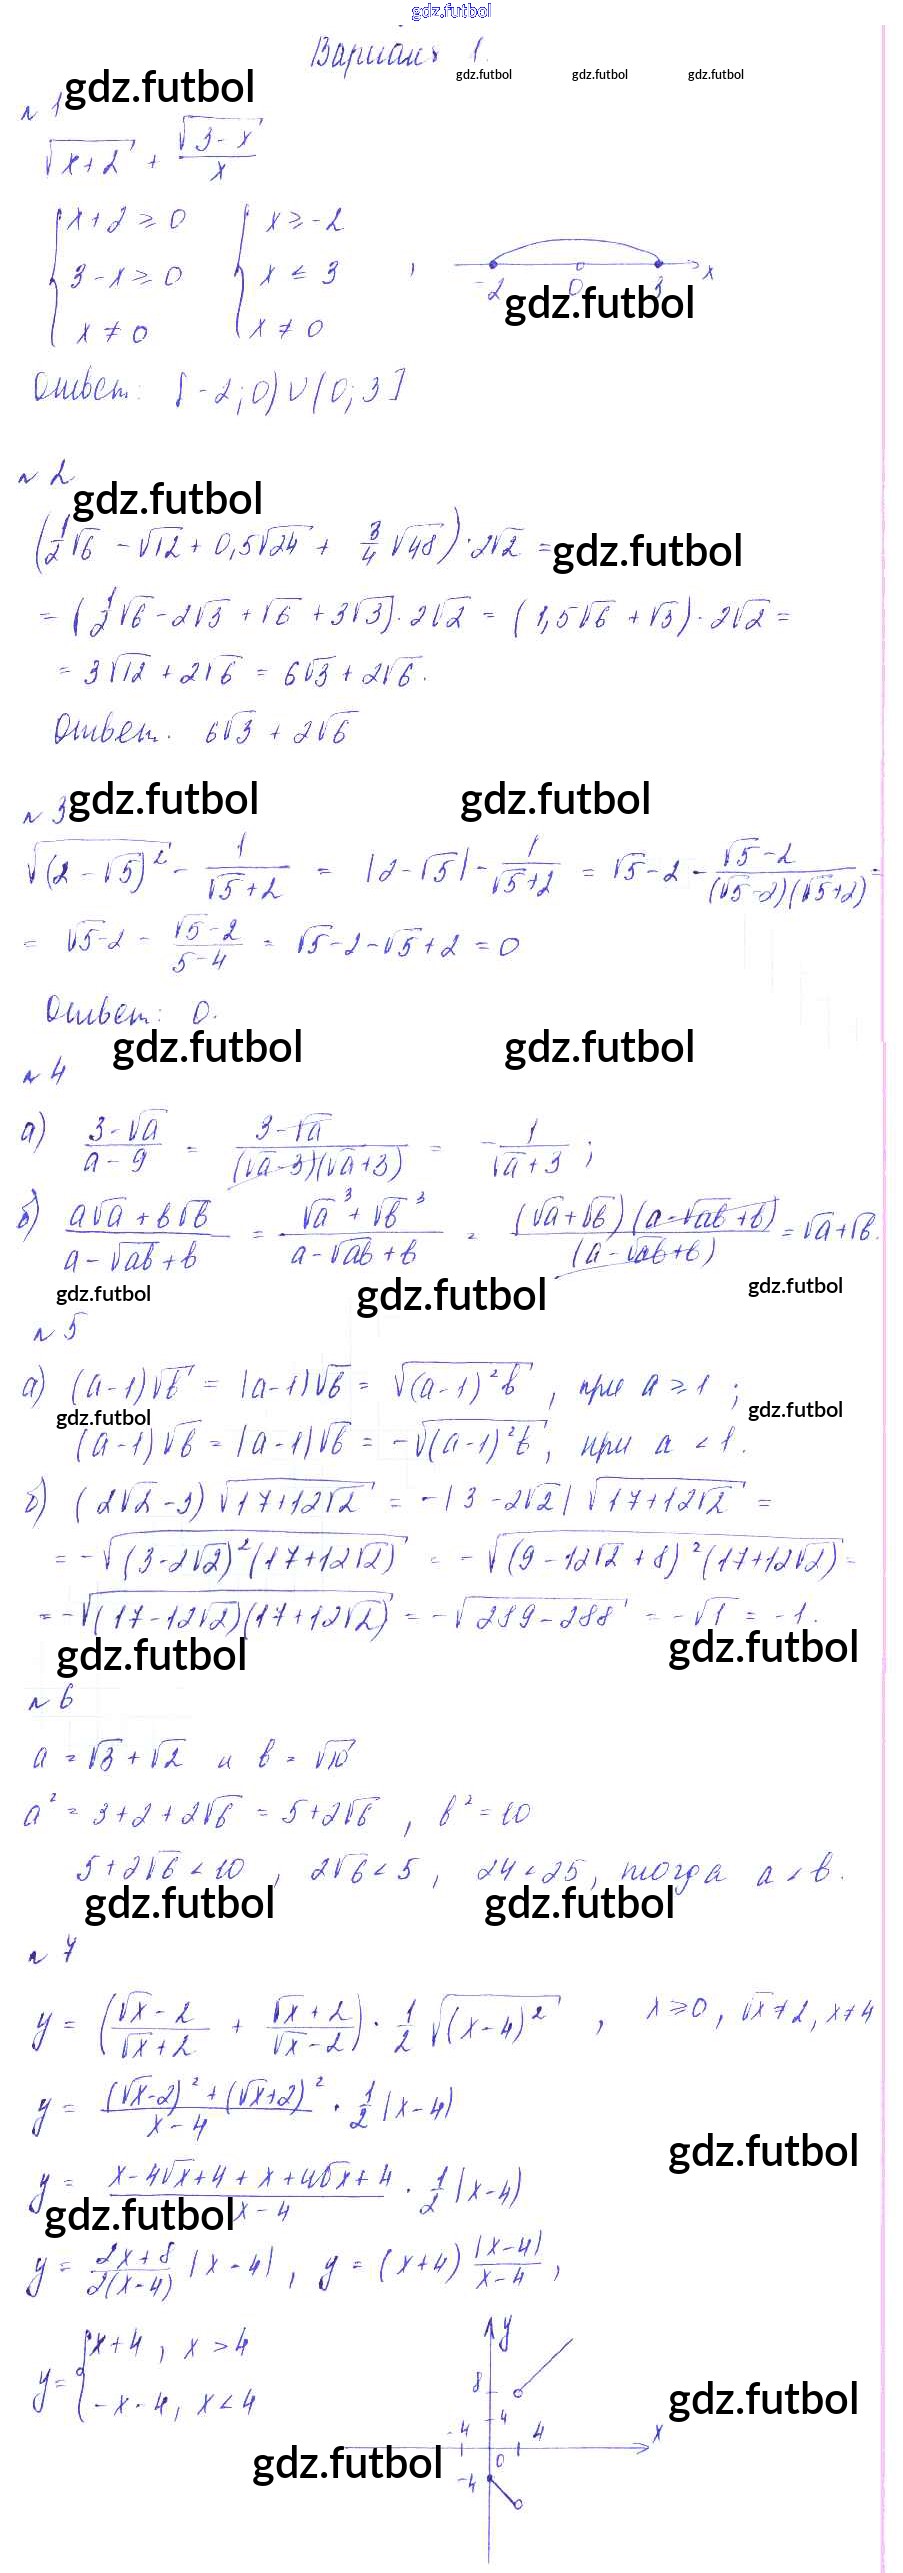 gdz.futbol
Вариант 1.
gdz.futbol gdz.futbol gdz.futbol gdz.futbol
№ 1
√(x+2) + √(3-x)/x
{ x+2 ≥ 0 { x ≥ -2
3-x ≥ 0 x ≤ 3 , -2 0 3 x
x ≠ 0 x ≠ 0
gdz.futbol
Ответ: [-2;0)∪(0;3]
№ 2
gdz.futbol
(1/2√6 - √12 + 0,5√24 + 3/4√48)·2√2 =
gdz.futbol
= (1/2√6 - 2√3 + √6 + 3√3)·2√2 = (1,5√6 + √3)·2√2 =
= 3√12 + 2√6 = 6√3 + 2√6.
Ответ. 6√3 + 2√6
№ 3
gdz.futbol gdz.futbol
√((2-√5)²) - 1/(√5+2) = |2-√5| - 1/(√5+2) = √5-2 - (√5-2)/((√5-2)(√5+2)) =
= √5-2 - (√5-2)/(5-4) = √5-2-√5+2 = 0
Ответ: 0.
gdz.futbol gdz.futbol
№ 4
а) (3-√a)/(a-9) = (3-√a)/((√a-3)(√a+3)) = -1/(√a+3) ;
б) (a√a+b√b)/(a-√ab+b) = (√a³+√b³)/(a-√ab+b) = (√a+√b)(a-√ab+b)/(a-√ab+b) = √a+√b.
gdz.futbol gdz.futbol gdz.futbol
№ 5
а) (a-1)√b = |a-1|√b = √((a-1)²b) , при a ≥ 1 ;
gdz.futbol gdz.futbol
(a-1)√b = |a-1|√b = -√((a-1)²b), при a < 1.
б) (2√2-3)√(17+12√2) = -|3-2√2|√(17+12√2) =
= -√((3-2√2)²(17+12√2)) = -√((9-12√2+8)²(17+12√2)) =
= -√((17-12√2)(17+12√2)) = -√(289-288) = -√1 = -1.
gdz.futbol gdz.futbol
№ 6
a = √3+√2 и b = √10
a² = 3+2+2√6 = 5+2√6 , b² = 10
5+2√6 < 10 , 2√6 < 5 , 24 < 25, тогда a < b.
gdz.futbol gdz.futbol
№ 7
y = ((√x-2)/(√x+2) + (√x+2)/(√x-2))·1/2√((x-4)²) , x ≥ 0, √x ≠ 2, x ≠ 4
y = ((√x-2)²+(√x+2)²)/(x-4) · 1/2|x-4|
gdz.futbol
y = (x-4√x+4+x+4√x+4)/(x-4) · 1/2|x-4|
gdz.futbol
y = (2x+8)/(2(x-4)) |x-4| , y = (x+4) |x-4|/(x-4) ,
y = { x+4 , x > 4
-x-4, x < 4
y 8 4 -4 4 x 0 -4
gdz.futbol
gdz.futbol